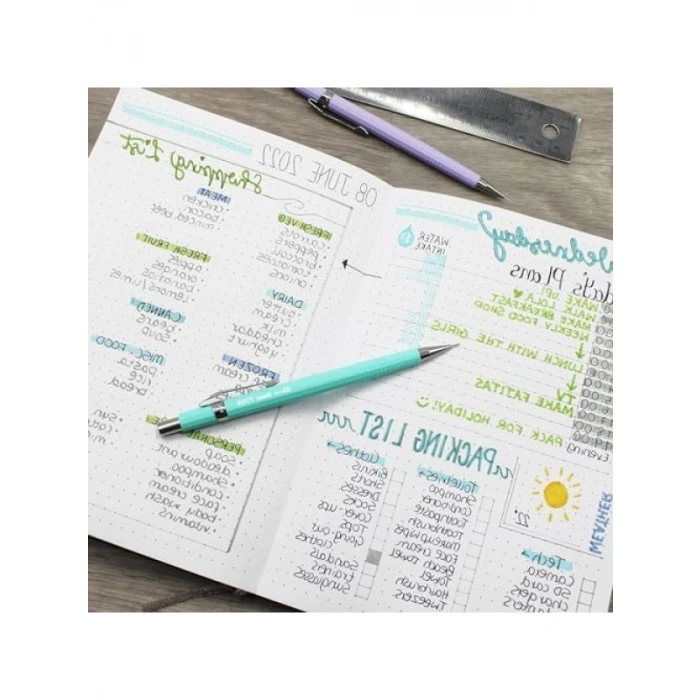 Wednesday
Plans
MAKE UP
WALK LOLA
MAKE BREAKFAST
WEEKLY FOOD SHOP
LUNCH WITH THE GIRLS
TV
MAKE FAJITAS
PACK FOR HOLIDAY!
Evening
WATER
INTAKE
WEATHER
22°
PACKING LIST
Tech
Camera
SD card
chargers
Toiletries
Shampoo
Conditioner
Toothpaste
Toothbrush
makeup wipes
Face cream
Beach towel
Towel
Hairbrush
Tweezers
Clothes
Bikinis
Shorts
Dresses
Cover-ups
Tops
Going-out
clothes
Sandals
trainers
Sunglasses
08 JUNE 2022
Shopping List
FRESH VEG
carrots
peppers
broccoli
tomatoes
onions
DAIRY
butter
cream
milk
cheddar
yoghurt
FROZEN
cream
soap
deodorant
shampoo
conditioner
face cream
body wash
vitamins
MEAT
chicken
bacon
minced beef
FRESH FRUIT
apples
bananas
lemons/limes
CANNED
beans
soup
MISC. FOOD
pasta
rice
bread